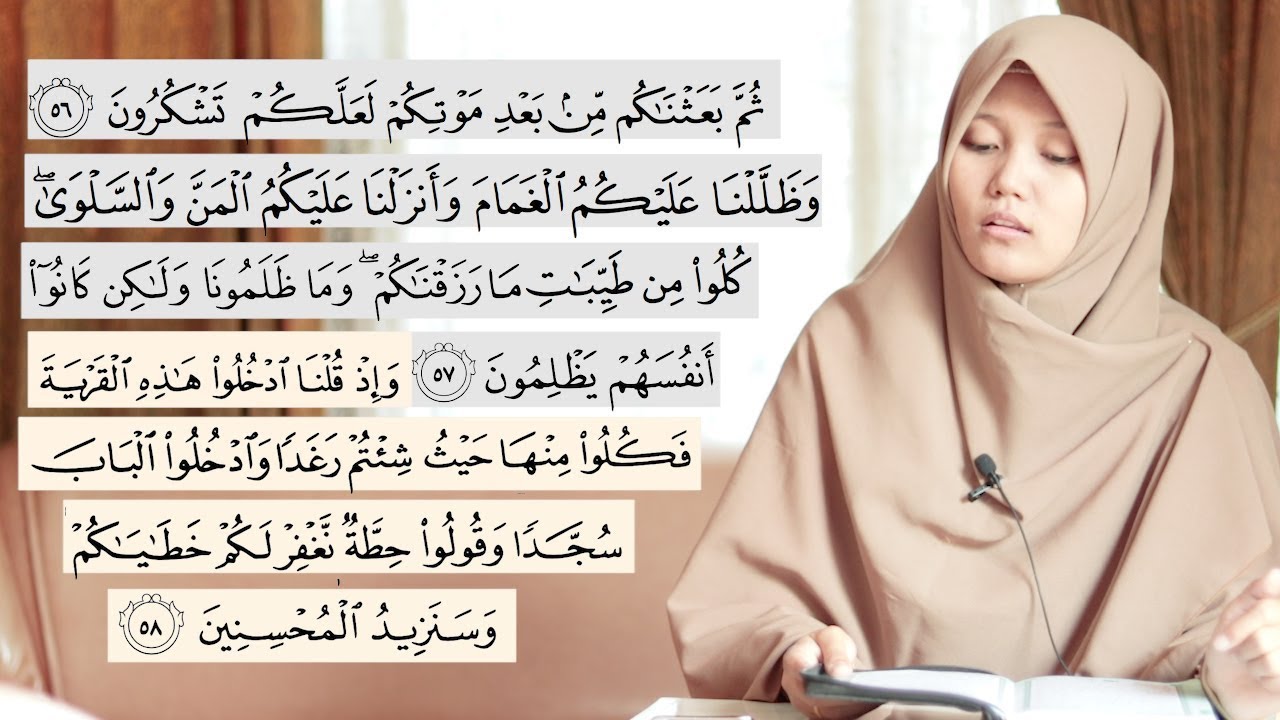 ثُمَّ بَعَثْنَـٰكُم مِّنۢ بَعْدِ مَوْتِكُمْ لَعَلَّكُمْ تَشْكُرُونَ ٥٦
وَظَلَّلْنَا عَلَيْكُمُ ٱلْغَمَامَ وَأَنزَلْنَا عَلَيْكُمُ ٱلْمَنَّ وَٱلسَّلْوَىٰۖ
كُلُوا۟ مِن طَيِّبَـٰتِ مَا رَزَقْنَـٰكُمْۖ وَمَا ظَلَمُونَا وَلَـٰكِن كَانُوٓا۟
أَنفُسَهُمْ يَظْلِمُونَ ٥٧ وَإِذْ قُلْنَا ٱدْخُلُوا۟ هَـٰذِهِ ٱلْقَرْيَةَ
فَكُلُوا۟ مِنْهَا حَيْثُ شِئْتُمْ رَغَدًا وَٱدْخُلُوا۟ ٱلْبَابَ
سُجَّدًا وَقُولُوا۟ حِطَّةٌ نَّغْفِرْ لَكُمْ خَطَـٰيَـٰكُمْ
وَسَنَزِيدُ ٱلْمُحْسِنِينَ ٥٨